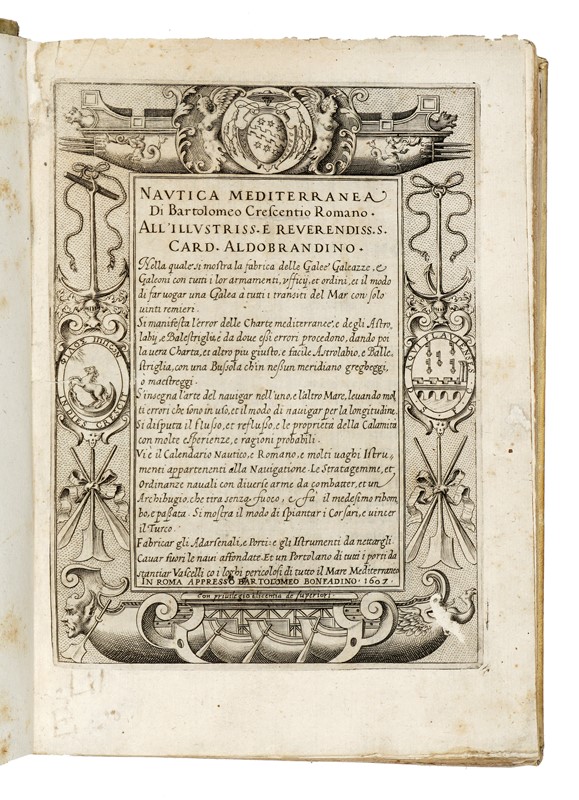 NAVTICA MEDITERRANEA
Di Bartolomeo Crescentio Romano.
ALL'ILLVSTRISS. E REVERENDISS. S.
CARD. ALDOBRANDINO.
Nella quale si mostra la fabrica delle Galee Galeazze, e
Galeoni con tutti i lor armamenti, vfficij, et ordini, et il modo
di far uogar una Galea à tutti i transiti del Mar con solo
uinti remieri.
Si manifesta l'error delle Charte mediterranee, e degli Astro,
labij, e Balestriglie da doue essi errori procedono, dando poi
la uera Charta, et altro piu giusto, e facile Astrolabio, e Balle,
striglia, con una Bussola ch'in nessun meridiano gregheggi,
o maestreggi.
S'insegna l'arte del nauigar nell'uno, e l'altro Mare, leuando mol
ti errori che sono in uso, et il modo di nauigar per la longitudine.
Si disputa il flusso, et reflusso, e le proprietà della Calamita
con molte esperienze, e ragioni probabili.
Vi è il Calendario Nautico, e Romano, e molti uaghi Istru,
menti appartenenti alla Nauigatione. Le Stratagemme, et
Ordinanze nauali con diuerse arme da combatter, et un
Archibugio, che tira senza fuoco, e fà il medesimo ribom
bo, e passata. Si mostra il modo di spiantar i Corsari, e uincer
il Turco.
Fabricar gli Adarsenali, e Porti: e gli Istrumenti da nettargli
Cauar fuori le naui affondate. Et un Portolano di tutti i porti da
stantiar Vascelli co i loghi pericolosi di tutto il Mare Mediterraneo
IN ROMA APPRESSO BARTOLOMEO BONFADINO. 1607.
Con priuilegio et licentia de superiori.